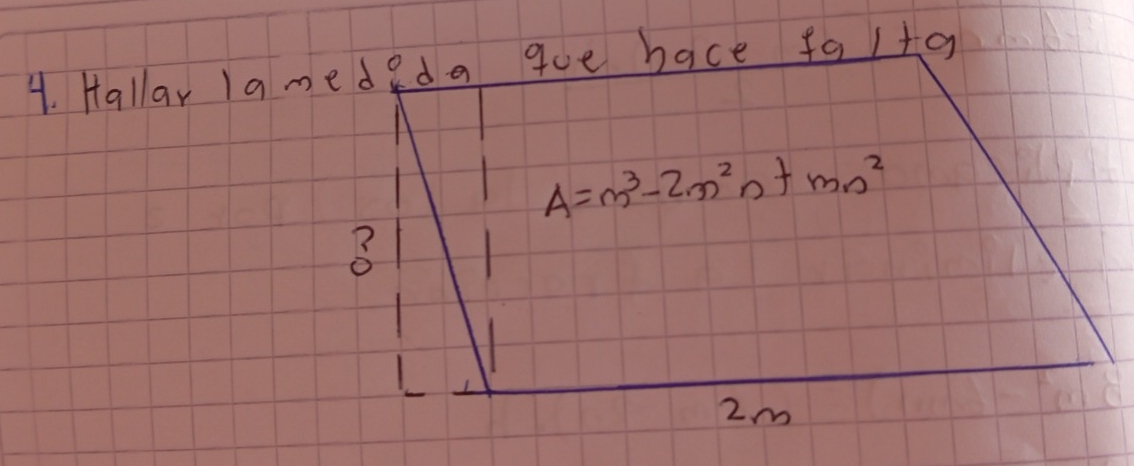 4. Hallar la medida que hace falta
A=m³-2m²n+mn²
?
2m